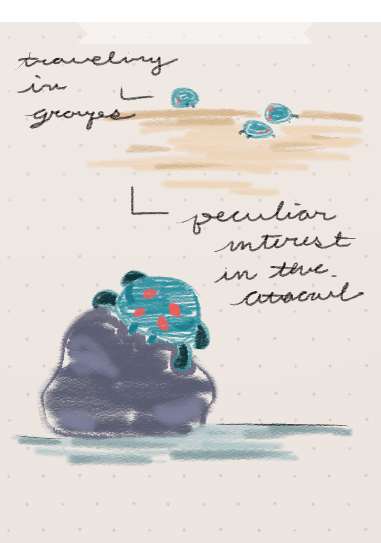 traveling
in
groupes
peculiar
interest
in the